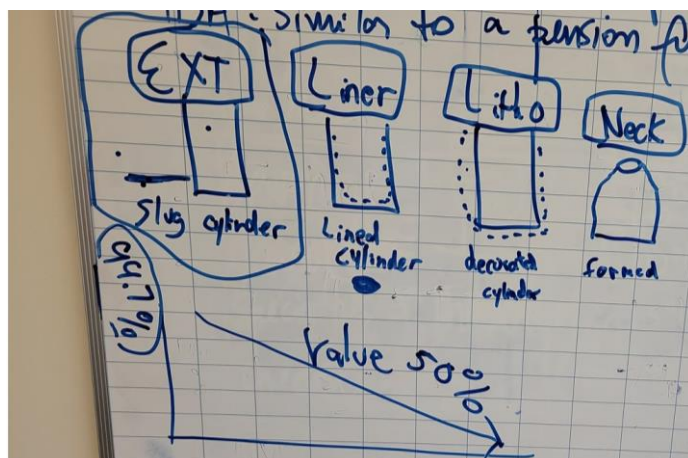 : Similar to a tension
EXT Liner Litho Neck
Slug cylinder
Lined cylinder
decorated cylinder
formed
Value 50%